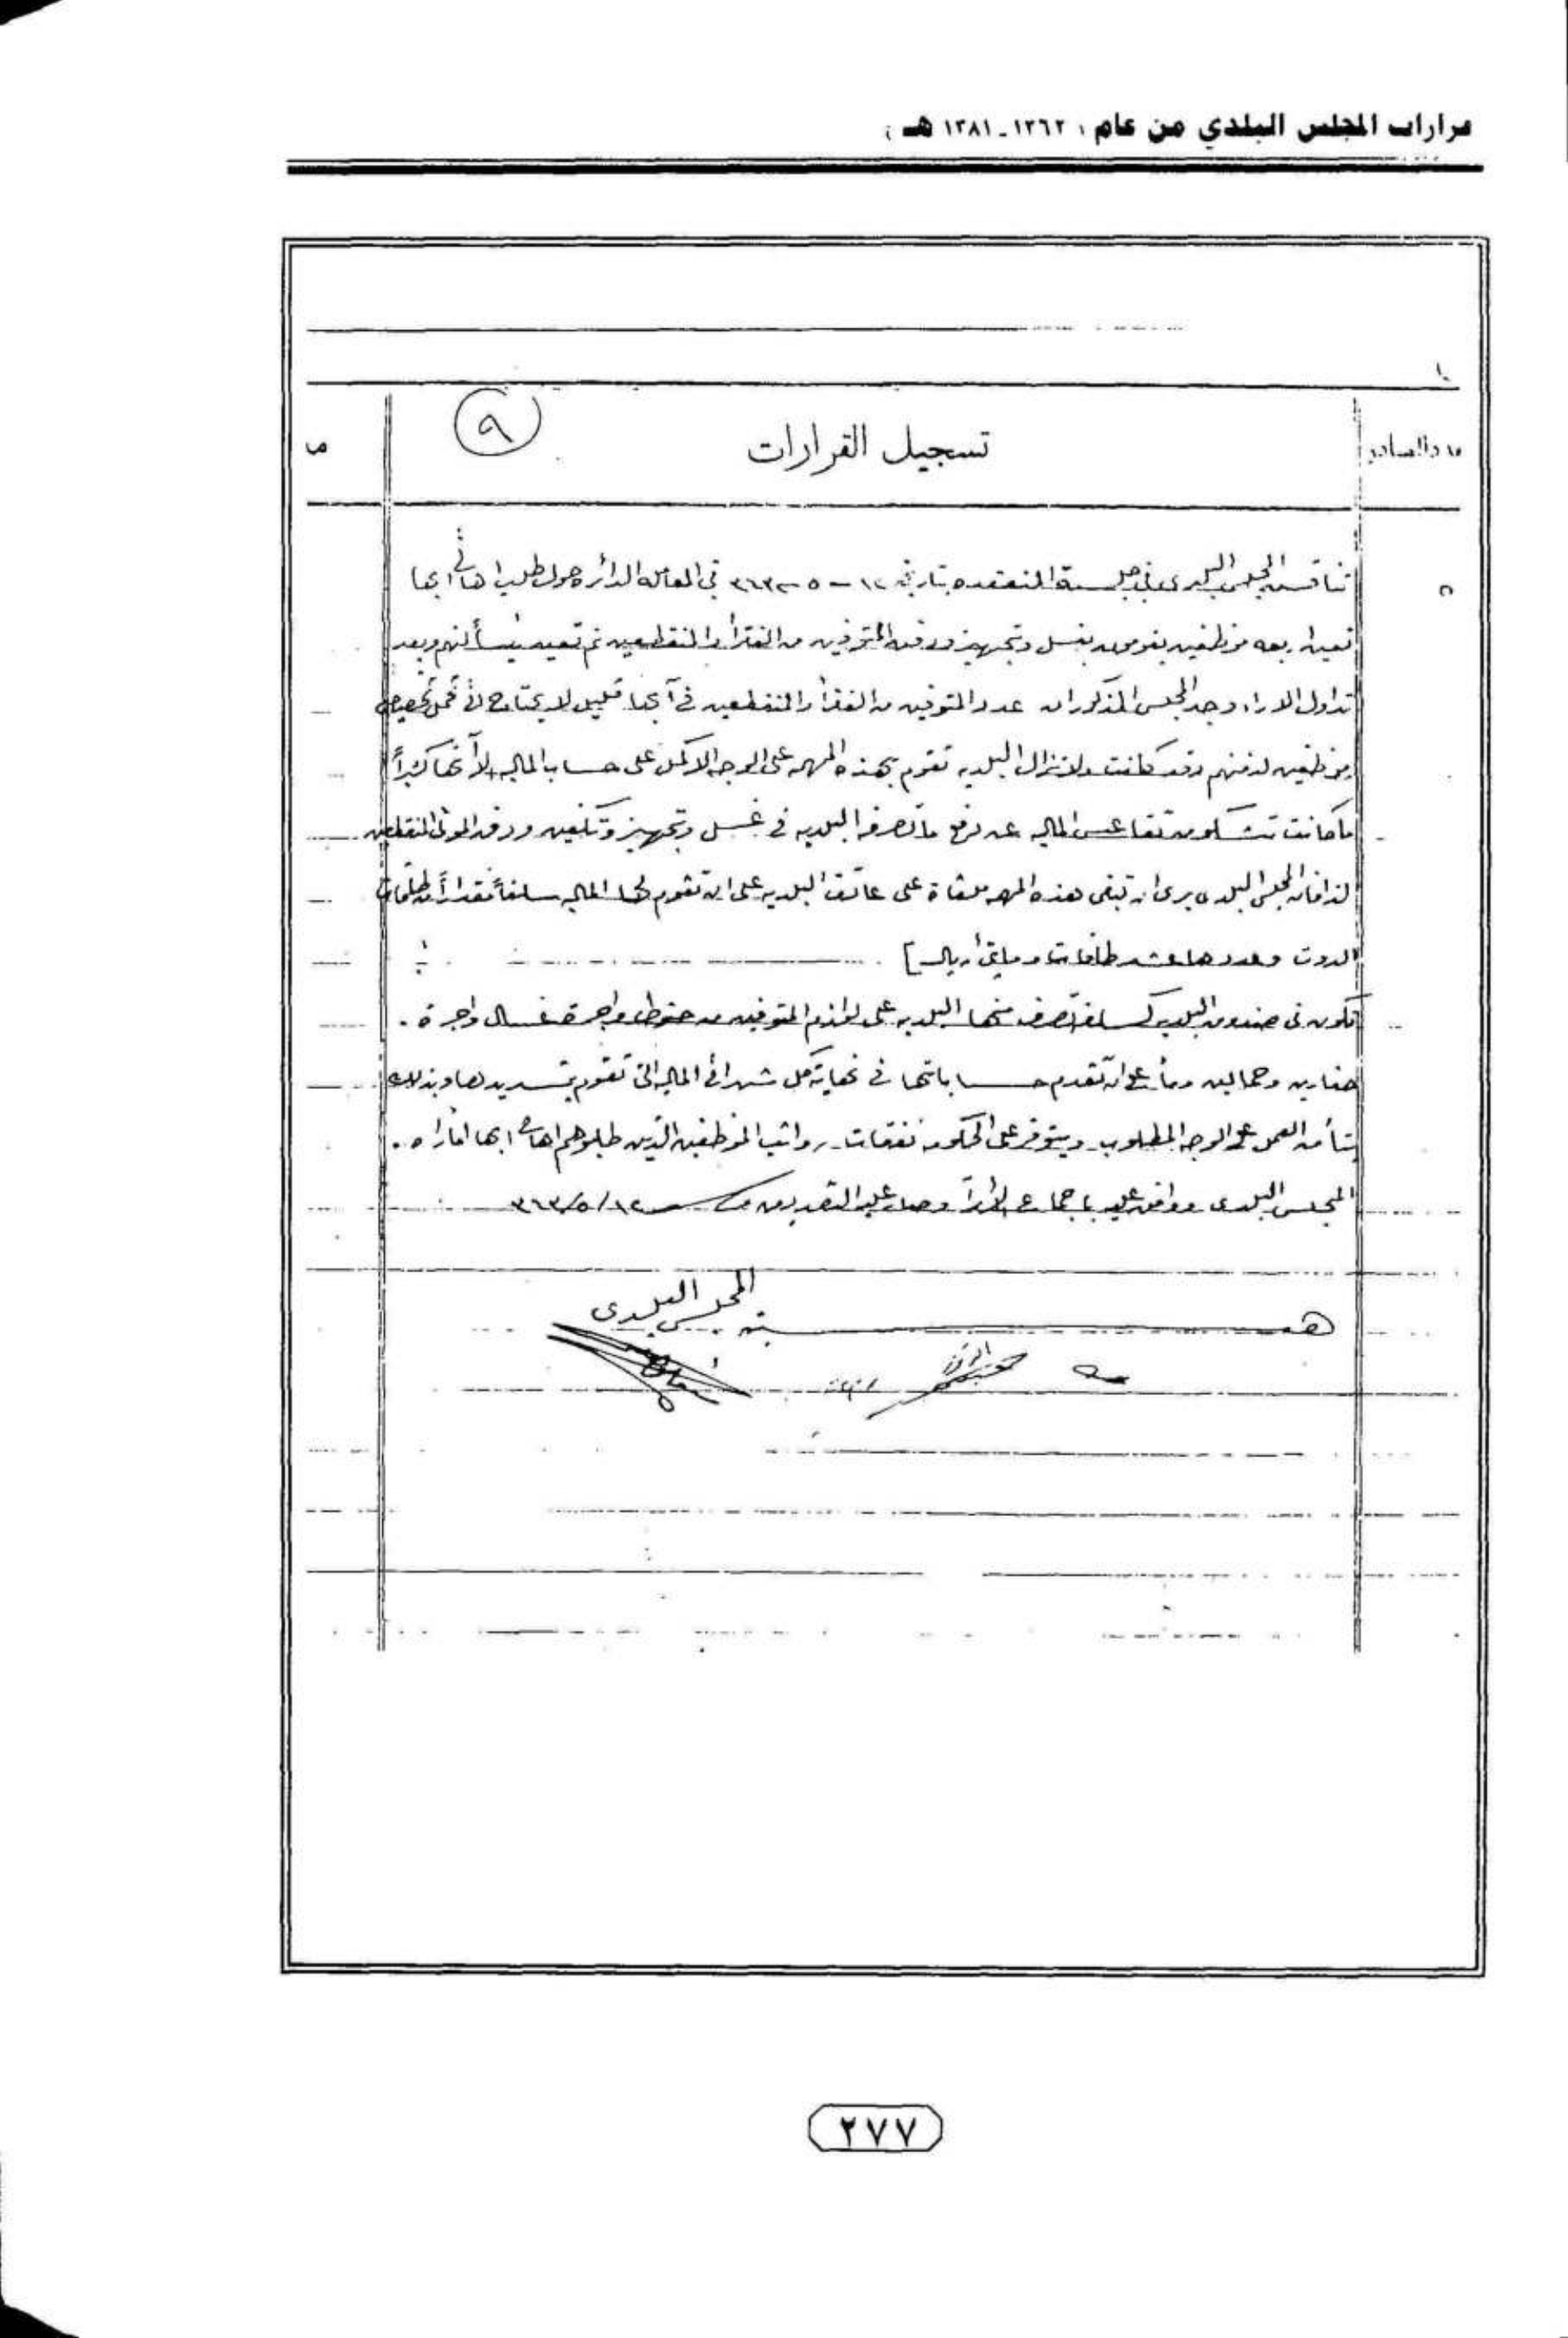 قرارات المجلس البلدي من عام ( ١٣٦٢ـ١٣٨١ هـ )
تسجيل القرارات
٩
تناقش المجلس البلدي في جلسته المنعقده بتاريخ ١٢ - ٥ - ٣٦٣ في المعامله الدائره حول طلب اهالي ابها
تعيين اربعه موظفين يقومون بغسل وتجهيز ودفن المتوفين من الفقرأ والمنقطعين ثم تعيين وبعد
تداول الاراء وجد المجلس المذكور ان عدد المتوفين من الفقرأ والمنقطعين في آبها قليل لا يحتاج الى تخصيص
موظفين لدفنهم وقد كانت ولا تزال البلديه تقوم بهذه المهمه على الوجه الاكمل على حساب الماليه الا آنها كثيراً
ما كانت تشكو من تقاعس الماليه عن دفع ما تصرفه البلديه في غسل وتجهيز وتكفين ودفن الموتى المنقطعين
لذا فان المجلس البلدي يرى ان تبقى هذه المهمه ملقاة على عاتق البلديه على ان تقوم لها الماليه سلفاً مقداراً من طاقات
الدوت وعددها عشر طاقات ومايتى ريال]
تكون في صندوق البلديه كسلفه تصرف منها البلديه على لوازم المتوفين من حنوط واجرة غسال واجرة .
حفارين وحمالين ومأ على ان تقدم حساباتها في نهاية كل شهر الى الماليه التى تقوم بتسديدها وبذلك
يتأمن العمل على الوجه المطلوب ويتوفر على الحكومه نفقات رواتب الموظفين الذين طلبوهم اهالي ابها
المجلس البلدى ووافق عليه باجماع الارأ وصار عليه التصديق ١٢/٥/٣٦٣
هيئة المجلس البلدى
٢٧٧